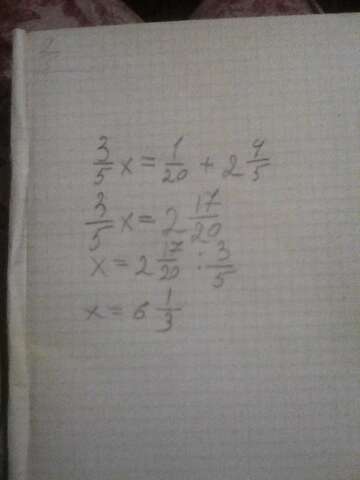 3/5 x = 1/20 + 2 4/5
3/5 x = 2 17/20
x = 2 17/20 : 3/5
x = 6 1/3